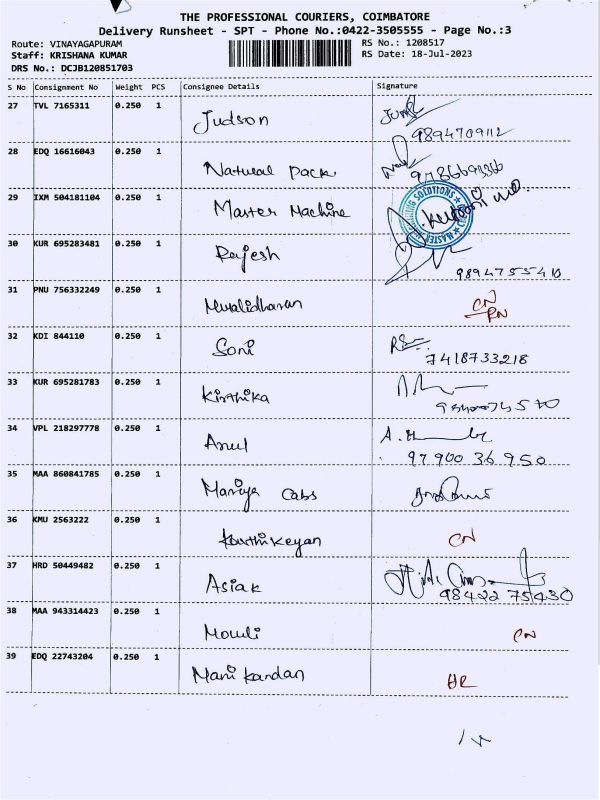 THE PROFESSIONAL COURIERS, COIMBATORE
Delivery Runsheet - SPT - Phone No.:0422-3505555 - Page No.:3
Route: VINAYAGAPURAM
Staff: KRISHANA KUMAR
DRS No.: DCJB120851703
RS No.: 1208517
RS Date: 18-Jul-2023
S No Consignment No Weight PCS Consignee Details Signature
27 TVL 7165311 0.250 1 Judson
9894709112
28 EDQ 16616043 0.250 1 Natural Pack
29 IXM 504181104 0.250 1 Master Machine
SOLUTIONS
MASTER
30 KUR 695283481 0.250 1 Rajesh
9894755410
31 PNU 756332249 0.250 1 Muralidharan CN
RN
32 KDI 844110 0.250 1 Soni
7418733218
33 KUR 695281783 0.250 1 Kirthika
34 VPL 218297778 0.250 1 Arul
97900 36 950
35 MAA 860841785 0.250 1 Mariya Cabs
36 KMU 2563222 0.250 1 Karthikeyan CN
37 HRD 50449482 0.250 1 Asiak
98422 75430
38 MAA 943314423 0.250 1 Mouli CN
39 EDQ 22743204 0.250 1 Manikandan HR